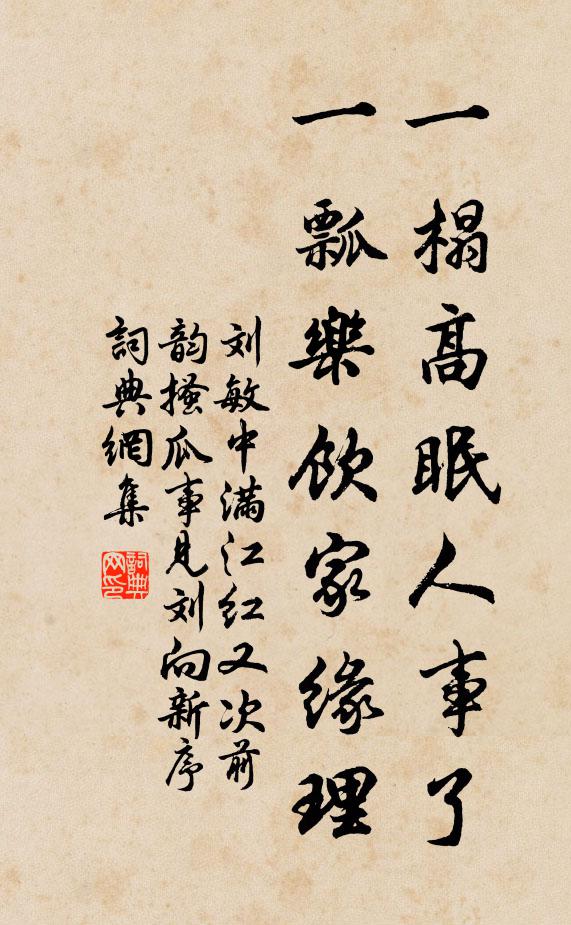 一榻高眠人事了
一瓢樂飲家緣理
刘敏中满江红又次前
韵搔瓜事見刘向新序
詞典網集
詞典
网印